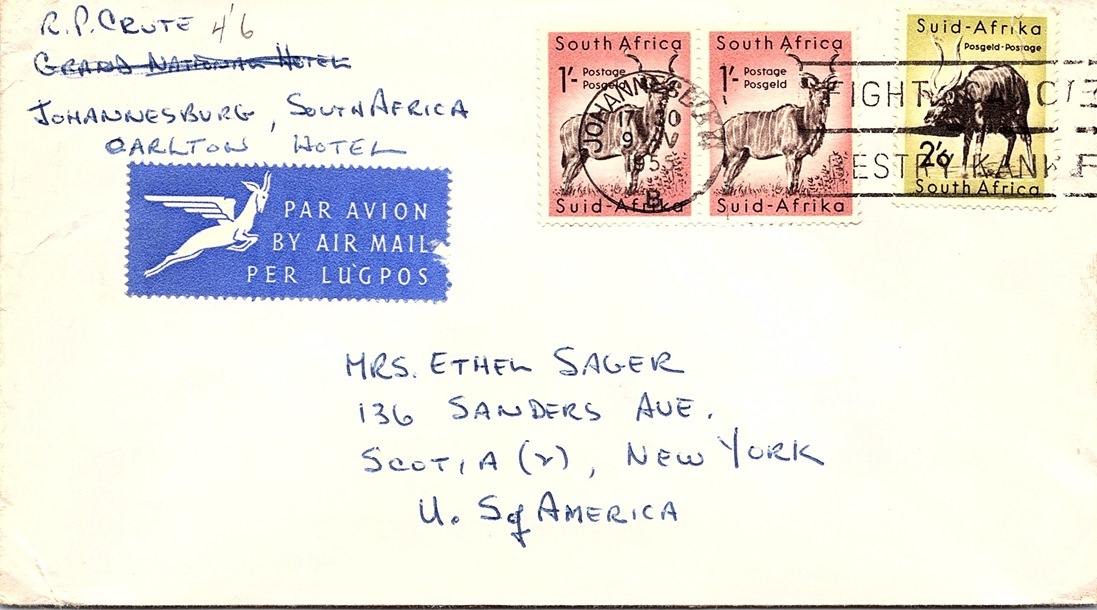 R.P. CRUTE 4'6
GRAND NATIONAL HOTEL
JOHANNESBURG, SOUTH AFRICA
CARLTON HOTEL
PAR AVION
BY AIR MAIL
PER LUGPOS
South Africa
1'- Postage
Posgeld
Suid-Afrika
South Africa
1'- Postage
Posgeld
Suid-Afrika
Suid-Afrika
Posgeld-Postage
2'6
South Africa
JOHANNESBURG
17 30
9 IV
195
B
FIGHT CANCE
ESTRY KANKE
MRS. ETHEL SAGER
136 SANDERS AVE.
SCOTIA (2), NEW YORK
U. S of AMERICA